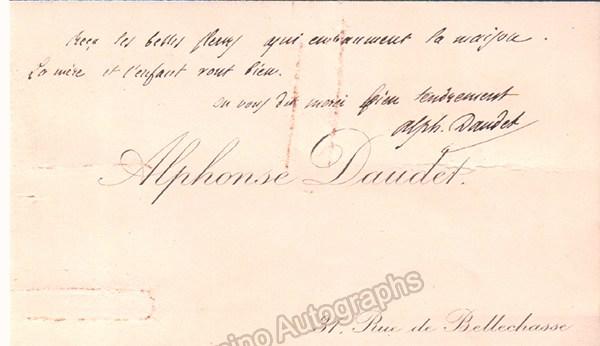 Reçu les belles fleurs qui embaument la maison.
La mère et l'enfant vont bien.
On vous dit merci bien tendrement
Alph. Daudet
Alphonse Daudet.
31, Rue de Bellechasse
ino Autographs